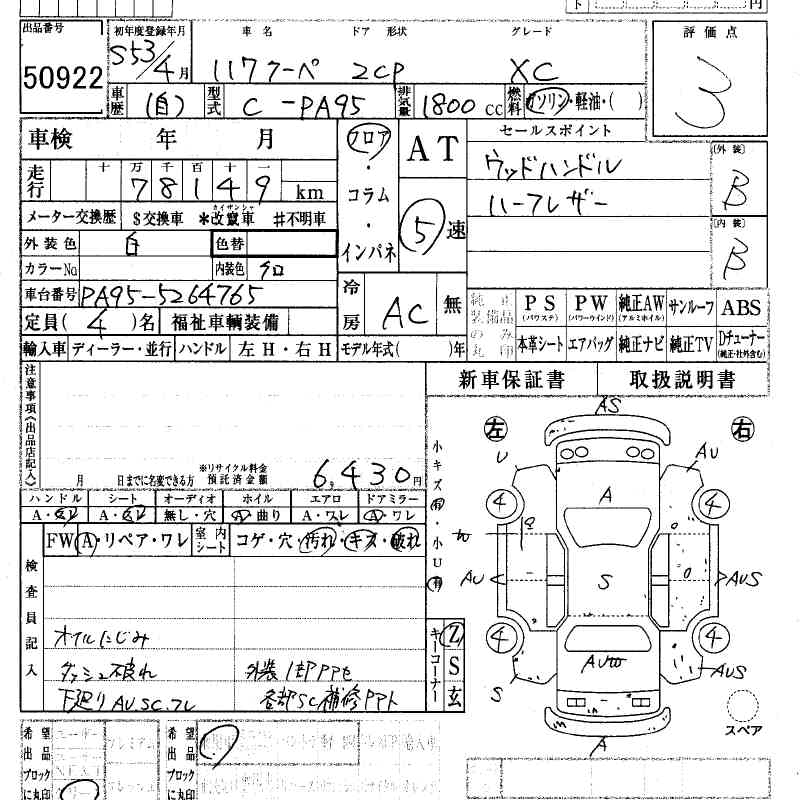 円
出品番号
50922
初年度登録年月 車名 ドア 形状 グレード
S53/4月 117クーペ 2CP XC
評価点
3
車歴 (自) 型式 C-PA95 排気量 1800cc 燃料 ガソリン・軽油・( )
車検 年 月
フロア・コラム・インパネ
AT
5速
セールスポイント
ウッドハンドル
ハーフレザー
[外装]
B
[内装]
B
走行 十万千百十一
78149 km
メーター交換歴 $交換車 *改竄車 #不明車
カイザンシャ
外装色 白 色替
カラーNo 内装色 クロ
車台番号 PA95-5264765
冷房 AC 無
定員( 4 )名 福祉車輌装備
純正装備品のみ丸印
PS (パワステ) PW (パワーウインド) 純正AW (アルミホイル) サンルーフ ABS
本革シート エアバッグ 純正ナビ 純正TV Dチューナー (純正・社外含む)
輸入車 ディーラー・並行 ハンドル 左H・右H モデル年式( )年
新車保証書 取扱説明書
注意事項(出品店記入)
月 日までに名変できる方
※リサイクル料金預託済金額 6,430円
ハンドル シート オーディオ ホイル エアロ ドアミラー
A・スレ A・スレ 無し・穴 A・曲り A・ワレ A・ワレ
FW A・リペア・ワレ 室内シート コゲ・穴・汚れ・キズ・破れ
検査員記入
オイルにじみ
ダッシュ破れ 外装1部PPセ
下廻りAU.SC.フレ 各部SC補修PPト
小キズ有・小U有
キーコーナー
Z
S
玄
左 右
AS
U
AU
4
4
A
W
AU
S
AUS
4
4
Auto
AUS
S
A
スペア
希望出品
ブロックに丸印
希望出品
ブロックに丸印